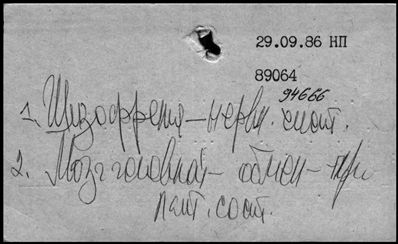 29.09.86 НП
89064
94666
1. Шизофрения – нервн. сист.
2. Мозг головной – обмен – при
пат. сост.